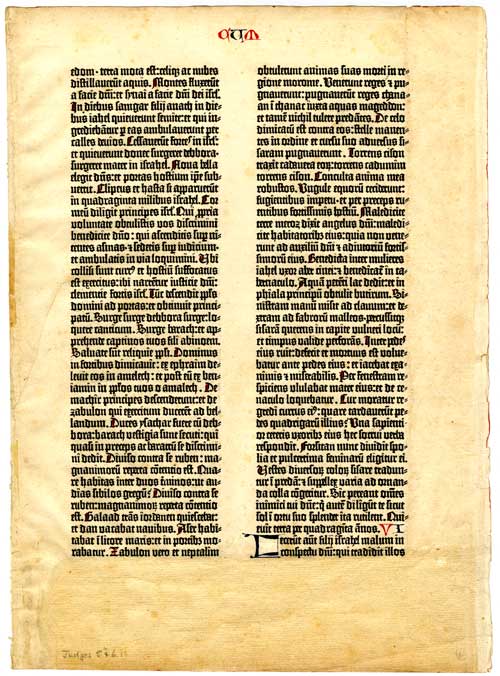 CUM
edom · terra mota est: celiq; ac nubes
distillaverūt aquis. Montes fluxerūt
a facie dñi: et synai a facie dñi dei isrl.
In diebus samgar filij anach in die-
bus iahel quieverunt semite: et qui in-
grediebāntur p eas ambulaverunt per
calles devios. Cessaverūt fortes in isrl:
et quieverunt donec surgeret debbora·
surgeret mater in israhel. Nova bella
elegit dñs: et portas hostium ipse sub-
vertit. Clipeus et hasta si apparuerīt
in quadraginta milibus israhel. Cor
meū diligit principes isrl. Qui ppria
voluntate obtulistis vos discrimini
benedicite dño: qui ascenditis sup ni-
tentes asinas· z sedetis sup iudicium·
et ambulatis in via loquimini. Ubi
collisi sunt currꝰ et hostiū suffocatus
est exercitus: ibi narrētur iusticie dñi:
clementie fortis isrl. Tūc descendit ppłs
domini ad portas: et obtinuit princi-
patū. Surge surge debbora surge: lo-
quere canticum. Surge barach: et ap-
prehende captivos tuos fili abinoem.
Salvate sūt reliquie ppłi. Dominus
in fortibus dimicavit: ex ephraim de-
levit eos in amelech: et post eū ex ben-
iamin in ppłos tuos o amalech. De
machir principes descenderunt: et de
zabulon qui exercitum ducerēt ad bel-
landum. Duces ysachar fuere cū deb-
bora: barach vestigia sunt secuti: qui
quasi in preceps ac baratrū se discrimi-
ni dedit. Diviso contra se ruben: ma-
gnanimorū reperta cōtentio est. Qua-
re habitas inter duos t'minos: ut au-
dias sibilos gregū? Diviso contra se
ruben: magnanimorū reperta cōtentio
est. Galaad trans iordanem quiescebat:
et dan vacabat navibus. Aser habi-
tabat ī litore maris: et in portubꝰ mo-
rabatur. Zabulon vero et neptalim
obtulerunt animas suas morti ī re-
gione merome. Venerunt reges z pu-
gnaverunt: pugnaverūt reges chana-
an ī thanac iuxta aquas magedon:
et tamē nichil tulere predātes. De celo
dimicatū est contra eos: stelle manen-
tes in ordine et cursu suo adversus si-
saram pugnaverunt. Torrens cison
traxit cadavera eoꝝ: torrens cadumim
torrens cison. Conculca anima mea
robustos. Ungule equorū ceciderunt:
fugientibus impetu: et per preceps ru-
entibus fortissimis hostiū. Maledicite
terre meroz dixit angelus dñi: maledi-
cite habitatoribꝰ eius: quia non vene-
runt ad auxiliū dñi: z adiutoriū fortis-
simorū eius. Benedicta inter mulieres
iahel uxor aber cinei: z benedicaꞇ̄ in ta-
bernaculo. Aquā petēti lac dedit: et in
phiala principū obtulit buticum. Si-
nistram manū misit ad clavum: et de-
xteram ad fabrorū malleos· percussitq;
sisarā querens in capite vulneri locū:
et timpus valide perforās. Inter pedes
eius ruit: defecit et mortuus est: volve-
batur ante pedes eius: et iacebat exa-
nimis z miserabilis. Per fenestram re-
spiciens ululabat mater eius: et de ce-
naculo loquebatur. Cur moratur re-
gredi currus eiꝰ: quare tardaverūt pe-
des quadrigarū illius? Una sapienti-
or ceteris uxoribꝰ eius hec socrui verba
respondit. Forsitan nunc dividit spo-
lia et pulcerrima feminarū eligitur ei.
Vestes diversoꝝ coloꝝ sisare tradun-
tur ī predā: z suppellex varia ad ornan-
da colla cōgeritur. Sic pereant omēs
inimici tui dñe: q̄ autē diligūt te sicut
sol ī ortu suo splendet ita rutilent. Qui-
evitq; terra per quadraginta ānos. VI
Fecerūt autē filij israhel malum in
conspectu dñi: qui tradidit illos
Judges 5 & 6